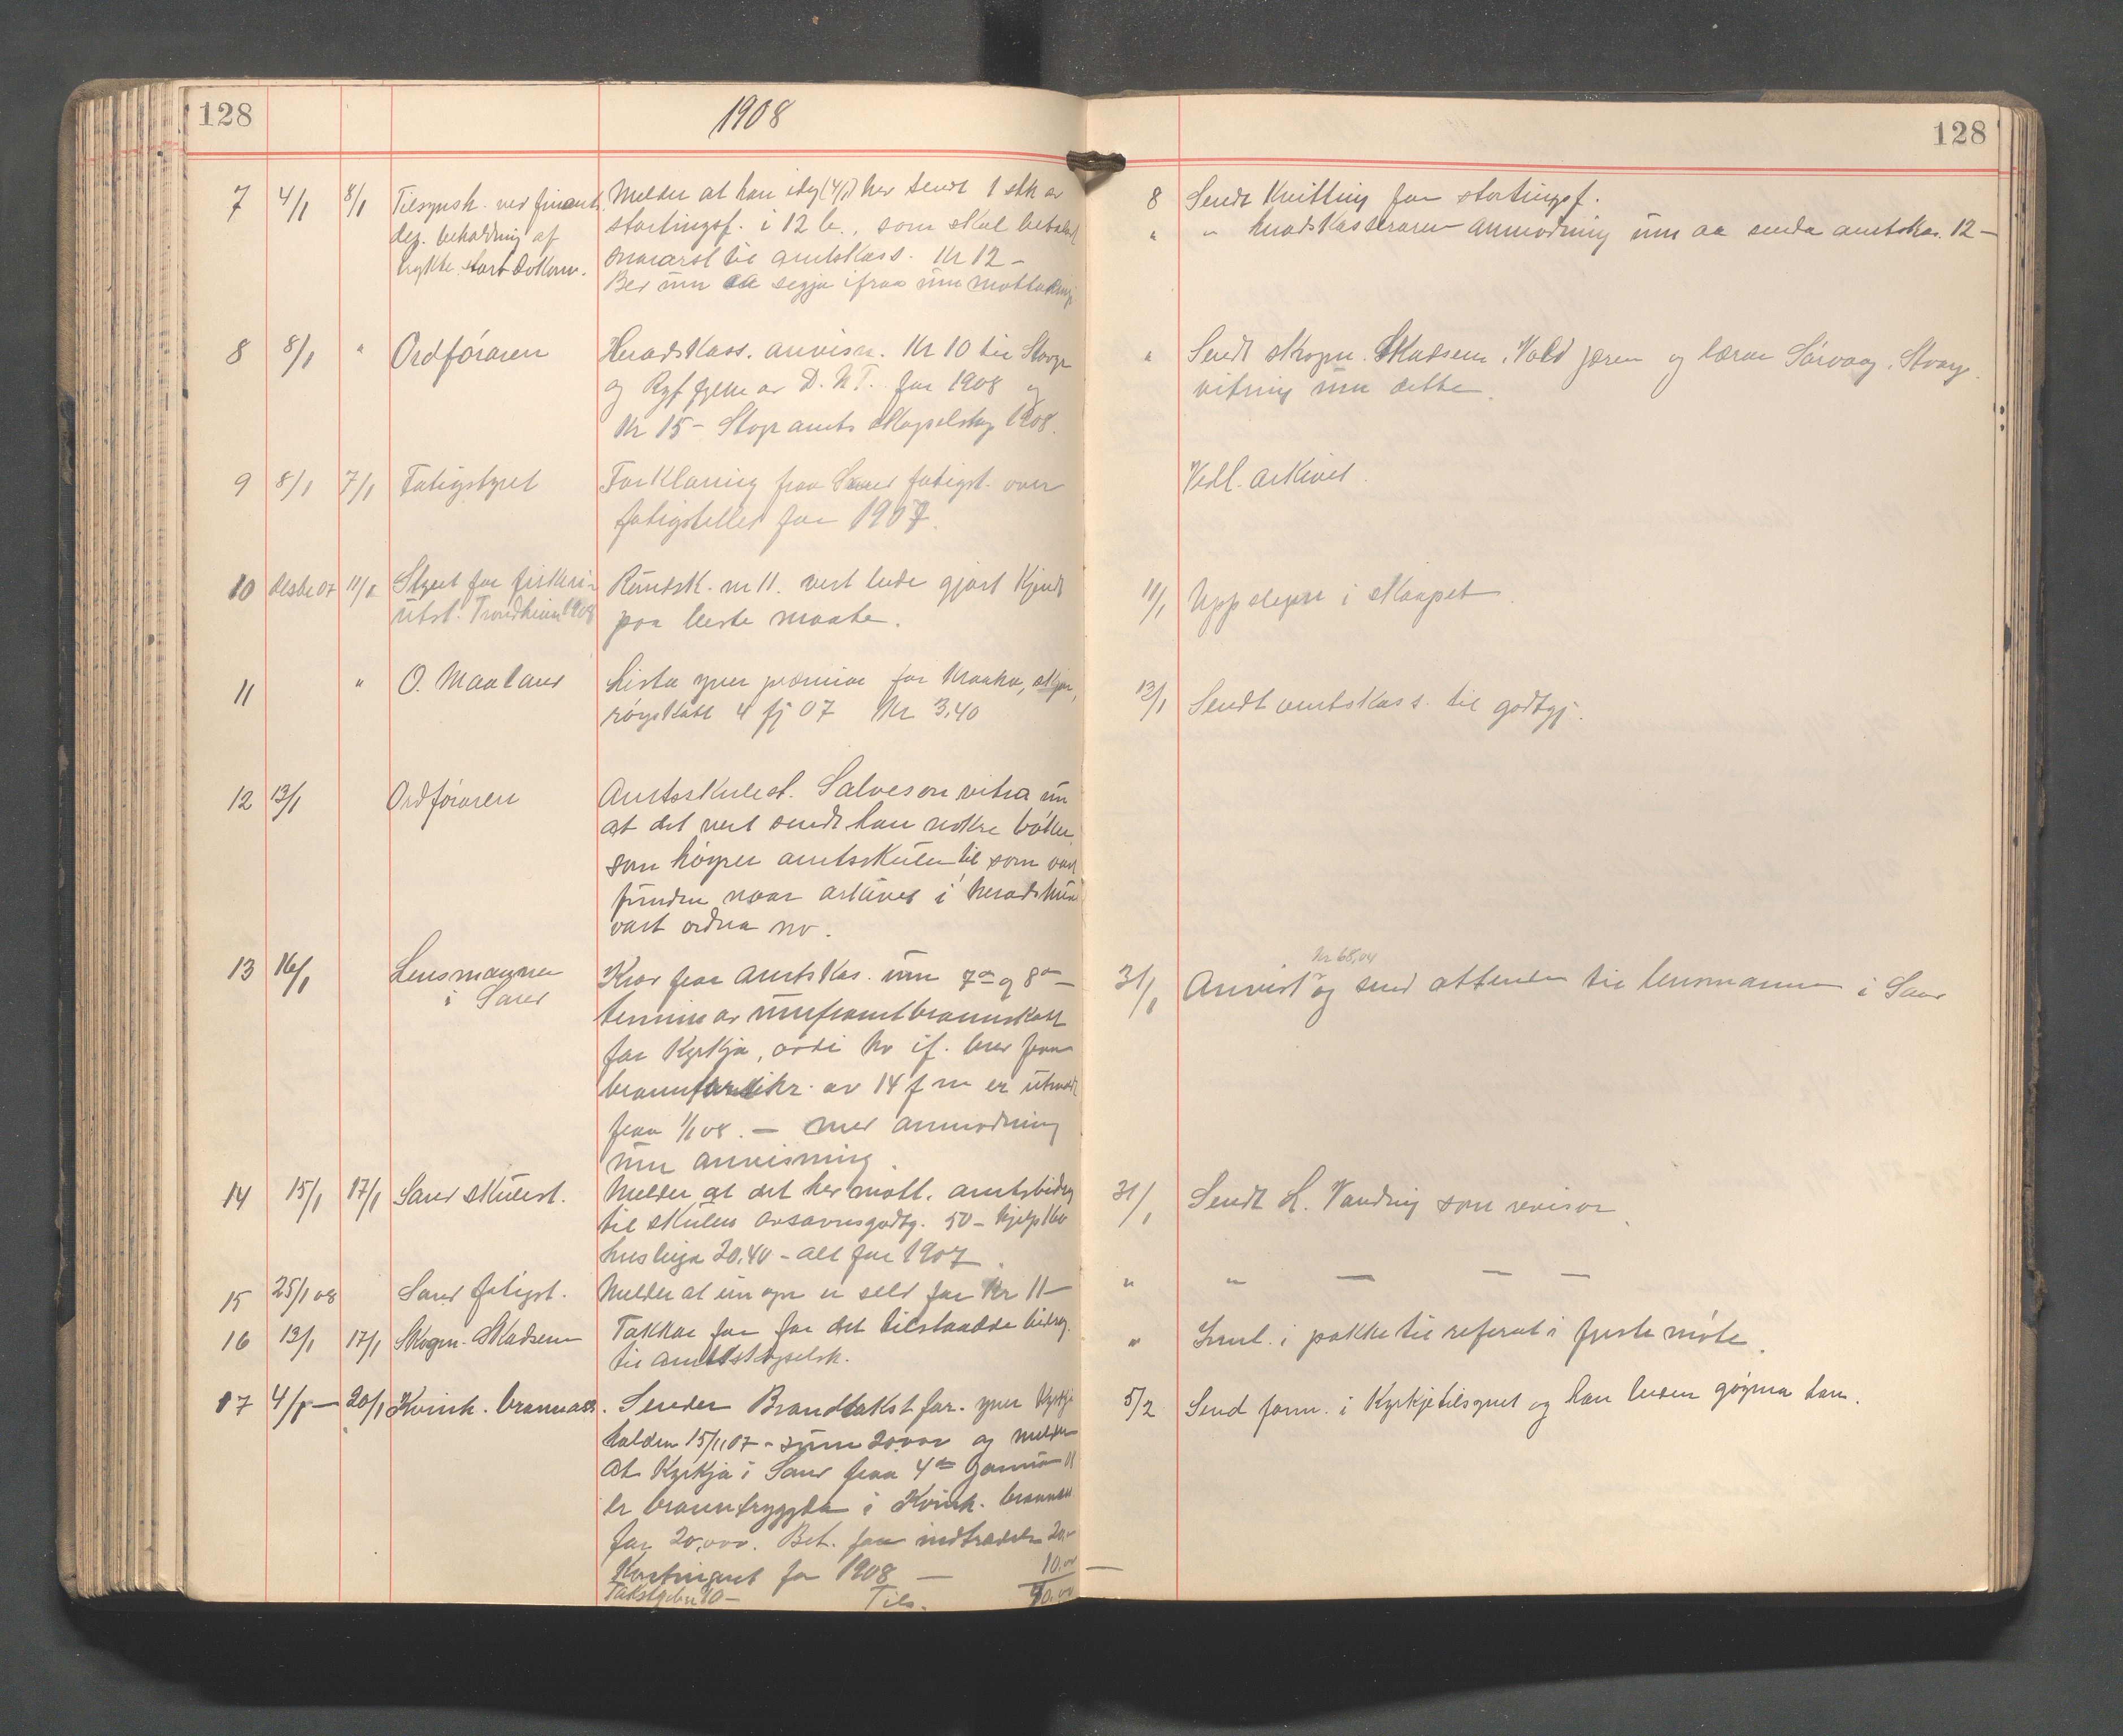 128
1908
128
7 4/1 8/1 Tilsynsk. ved finants
dep. behaldning af
trykte stort dokum.
Melder at han idag (4/1) her sendt 1 stk av
stortingsf. i 12 b., som skal betalast
snararst til amtskass. Kr 12 –
Ber um aa segja ifraa um mottaking
8 Sendt Kvitting for stortingsf.
" " heradskasseraren anmodning um aa senda amtskas. 12 –
8 8/1 " Ordføraren
Heradskass. anvisn. Kr 10 til Stavgr
og Ryf fylke av D. N T. for 1908 og
Kr 15 – Stavgr amts skogselskap 1908.
" Sendt skogn. Skadsem, Vold jæren og lærar Sørvaag, Stavgr.
vitring um dette.
9 8/1 7/1 Fatigstyret
Forklaring fraa Sand fatigst. over
fatigstellet for 1907.
Vedl. arkivet.
10 desbr 07 11/1 Styret for fiskeri-
utst. Trondheim 1908
Rundsk. nr 11. vert bede gjort kjendt
paa beste maate.
11/1 Uppslegen i skaapet.
11 " O. Maaland
Lista yver præmiar for kraaka, skjor,
røyskatt 4 fj 07 Kr 3,40
13/1 Sendt amtskass. til godtgj.
12 13/1 Ordføraren
Amtsskulest. Salveson vitra um
at det vert sendt han nokre bøker,
som høyrer amtsskulen til som vart
funden naar arkivet i heradshus
vart ordna no.
13 16/1 Lensmannen
i Sand
Krav fraa amtskas. um 7de og 8de
termin av umframt brannskatt
for Kyrkja, avdi ho if. brev fraa
brannforsikr. av 14 f m er utmeldt
fraa 1/1 08. – med anmodning
um anvisning.
Kr 68,04
31/1 Anvist og send attende til lensmannen i Sand
14 15/1 17/1 Sand skulest.
Melder at det her mott. amtsbidrag
til skulen avsavnsgodtg. 50 –
husleiga 20,40 – alt for 1907.
31/1 Sendt L. Vandvig som revisor.
15 25/1 08 Sand fatigst.
Melder at um er seld for Kr 11 –
" " — — —
16 13/1 17/1 Skogn. Skadsem
Takkar for det tilstaadde bidrag
til amtsskogselsk.
" Innl. i pakke til referat i fyrste møte.
17 4/1 – 20/1 Kvinh. brannass.
Sender Brandtakst for. yver Kyrkje
halden 15/11 07 – sum 20000 og melder
at Kyrkja i Sand fraa 4de Januar
er branntrygda i Kvinh. brannass.
for 20,000. Bet. for indtrædelse 20.–
Kontingent for 1908 — 10.00
Takstgebyr 10 – Tils. 40.00
5/2 Send form. i Kyrkjetilsynet og han beden gøyma han.